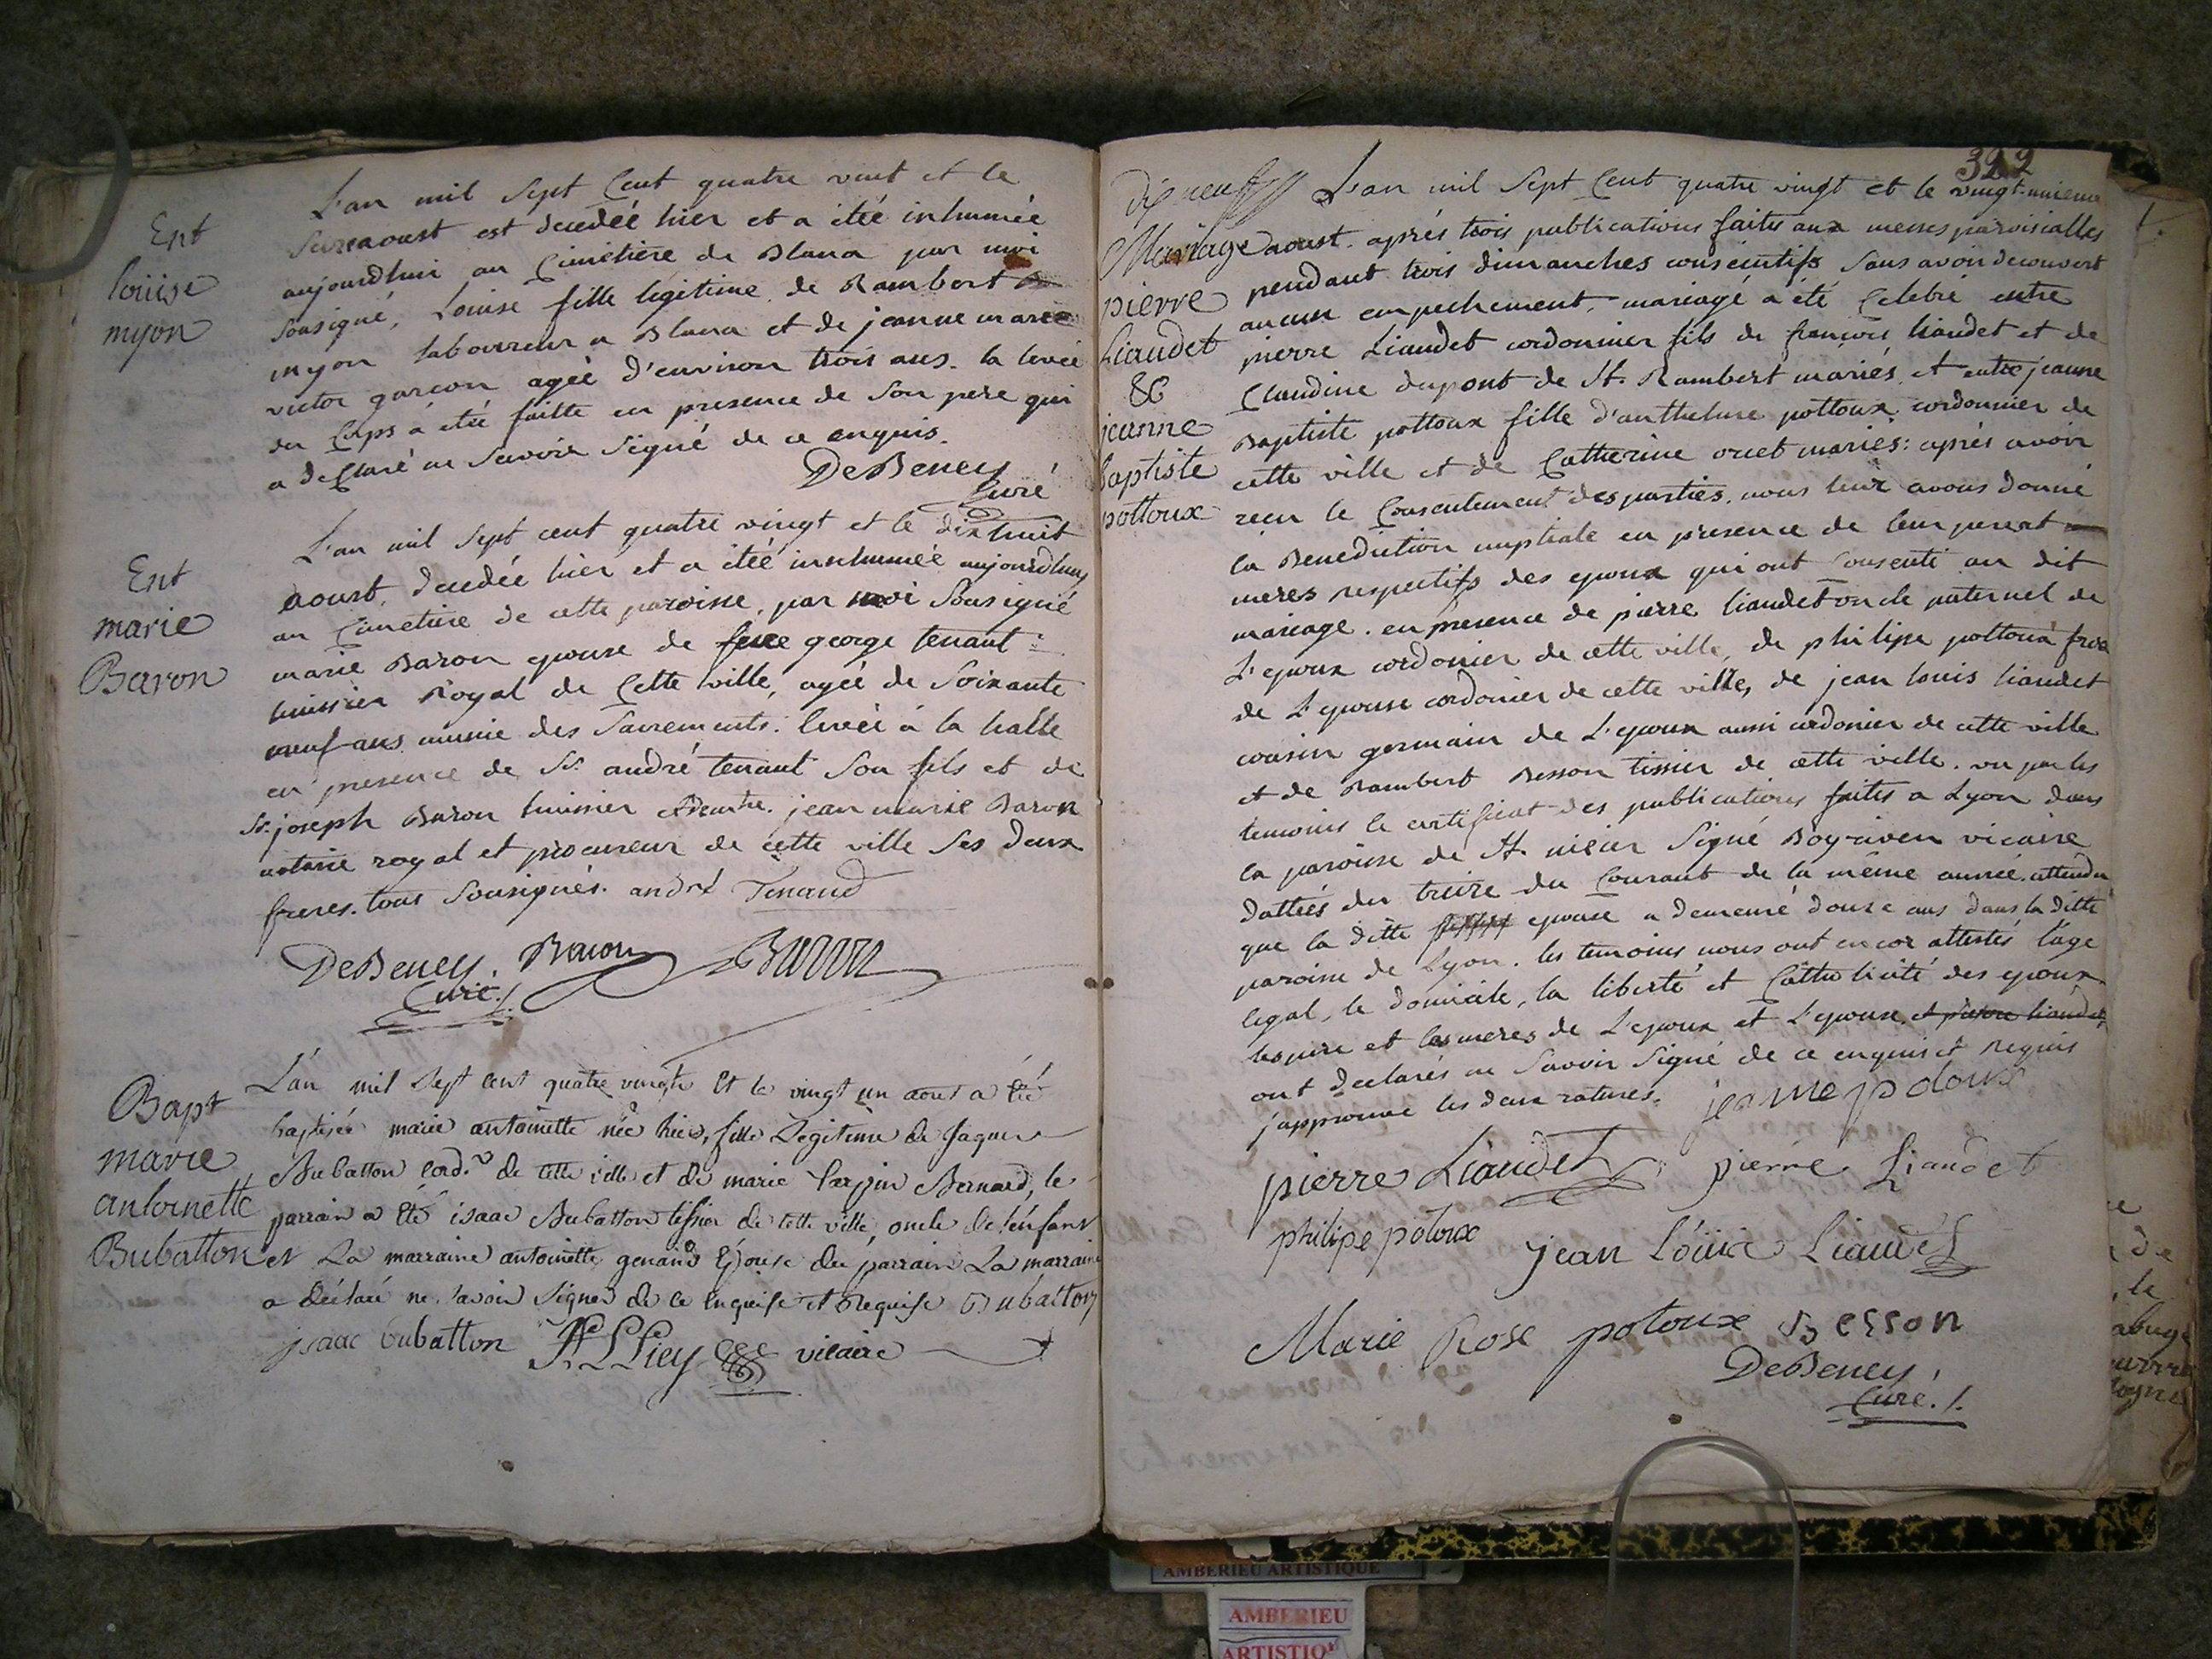 Ent
louise
myon
L'an mil Sept Cent quatre vint et le
Seize aoust est decedée hier et a étée inhumée
aujourdhui au Cimetière de Blana par moi
sousigné, Louise fille légitime de Rambert
myon laboureur a Blana et de jeanne marie
victor garcon agée d'environ trois ans. la levée
du Corps a étée faitte en presence de Son pere qui
a deClaré ne Savoir Signé de ce enquis.
DeBeney
Curé
Ent
marie
Baron
L'an mil Sept cent quatre vingt et le dix huit
aoust, decedée hier et a étée inhumée aujourdhuy
au Cimetiere de cette paroisse, par moi Sousigné
marie Baron epouse de feu george tenant
huissier Royal de Cette ville, agée de Soixante
neuf ans munie des Sacrements. levée à la halle
en presence de Sr. andré tenant Son fils et de
Sr. joseph Baron huissier jean marie Baron
notaire royal et procureur de cette ville Ses deux
freres. tous Sousignés. andré Tenaud
DeBeney. Baron Baron
Curé !
Bapt
marie
antoinette
Bubatton
L'an mil Sept cent quatre vingts et le vingt un aout a été
baptisée marie antoinette née hier, fille Legitime de Jaques
Bubatton cord.r de cette ville et de marie Carpin Bernard, le
parrain a été isaac Bubatton tissier de cette ville, oncle de l'enfant
et La marraine antoinette genand Epouse du parrain La marraine
a déclaré ne savoir signer de ce enquise et Requise Bubatton
jsaac bubatton vicaire
322
dix neuf
Mariage
pierre
Liaudet
&
jeanne
baptiste
pottoux
L'an mil Sept Cent quatre vingt et le vingt-unieme
aoust. après trois publications faites aux messes paroisialles
pendant trois dimanches consécutifs Sans avoir decouvert
aucun empechement, mariage a été Celebré entre
pierre Liaudet cordonnier fils de françois liaudet et de
Claudine dupont de St. Rambert mariés, et entre jeanne
Baptiste pottoux fille d'anthelme pottoux cordonnier de
cette ville et de Catherine oriet mariés: après avoir
reçu le Consentement des parties. nous leur avons donné
la Benediction nuptiale en presence de leur pere et
meres respectifs des epoux qui ont Consenti au dit
mariage. en presence de pierre liaudet oncle paternel de
L'epoux cordonier de cette ville, de philipe pottoux frere
de L'epouse cordonier de cette ville, de jean louis liaudet
cousin germain de L'epoux aussi cordonier de cette ville
et de Rambert Besson tissier de cette ville. vu par les
temoins le certificat des publications faites a Lyon dans
la paroisse de St. nisier Signé Boyriven vicaire
dattées du treize du Courant de la même année. attendu
que la ditte epouse a demeuré douze ans dans la ditte
paroisse de Lyon. les temoins nous ont encor attestés l'age
legal, le domicile, la liberté et Catholicité des epoux
les pere et les meres de L'epoux et L'epouse, et pierre liaudet
ont declarés ne Savoir Signé de ce enquis et requis
j'approuve les deux ratures. jeanne p doux
pierre Liaudet pierre Liaudet
philipe potoux jean Louis Liaudet
Marie Rose potoux Besson
DeBeney
Curé. !.
AMBERIEU ARTISTIQUE
AMBERIEU